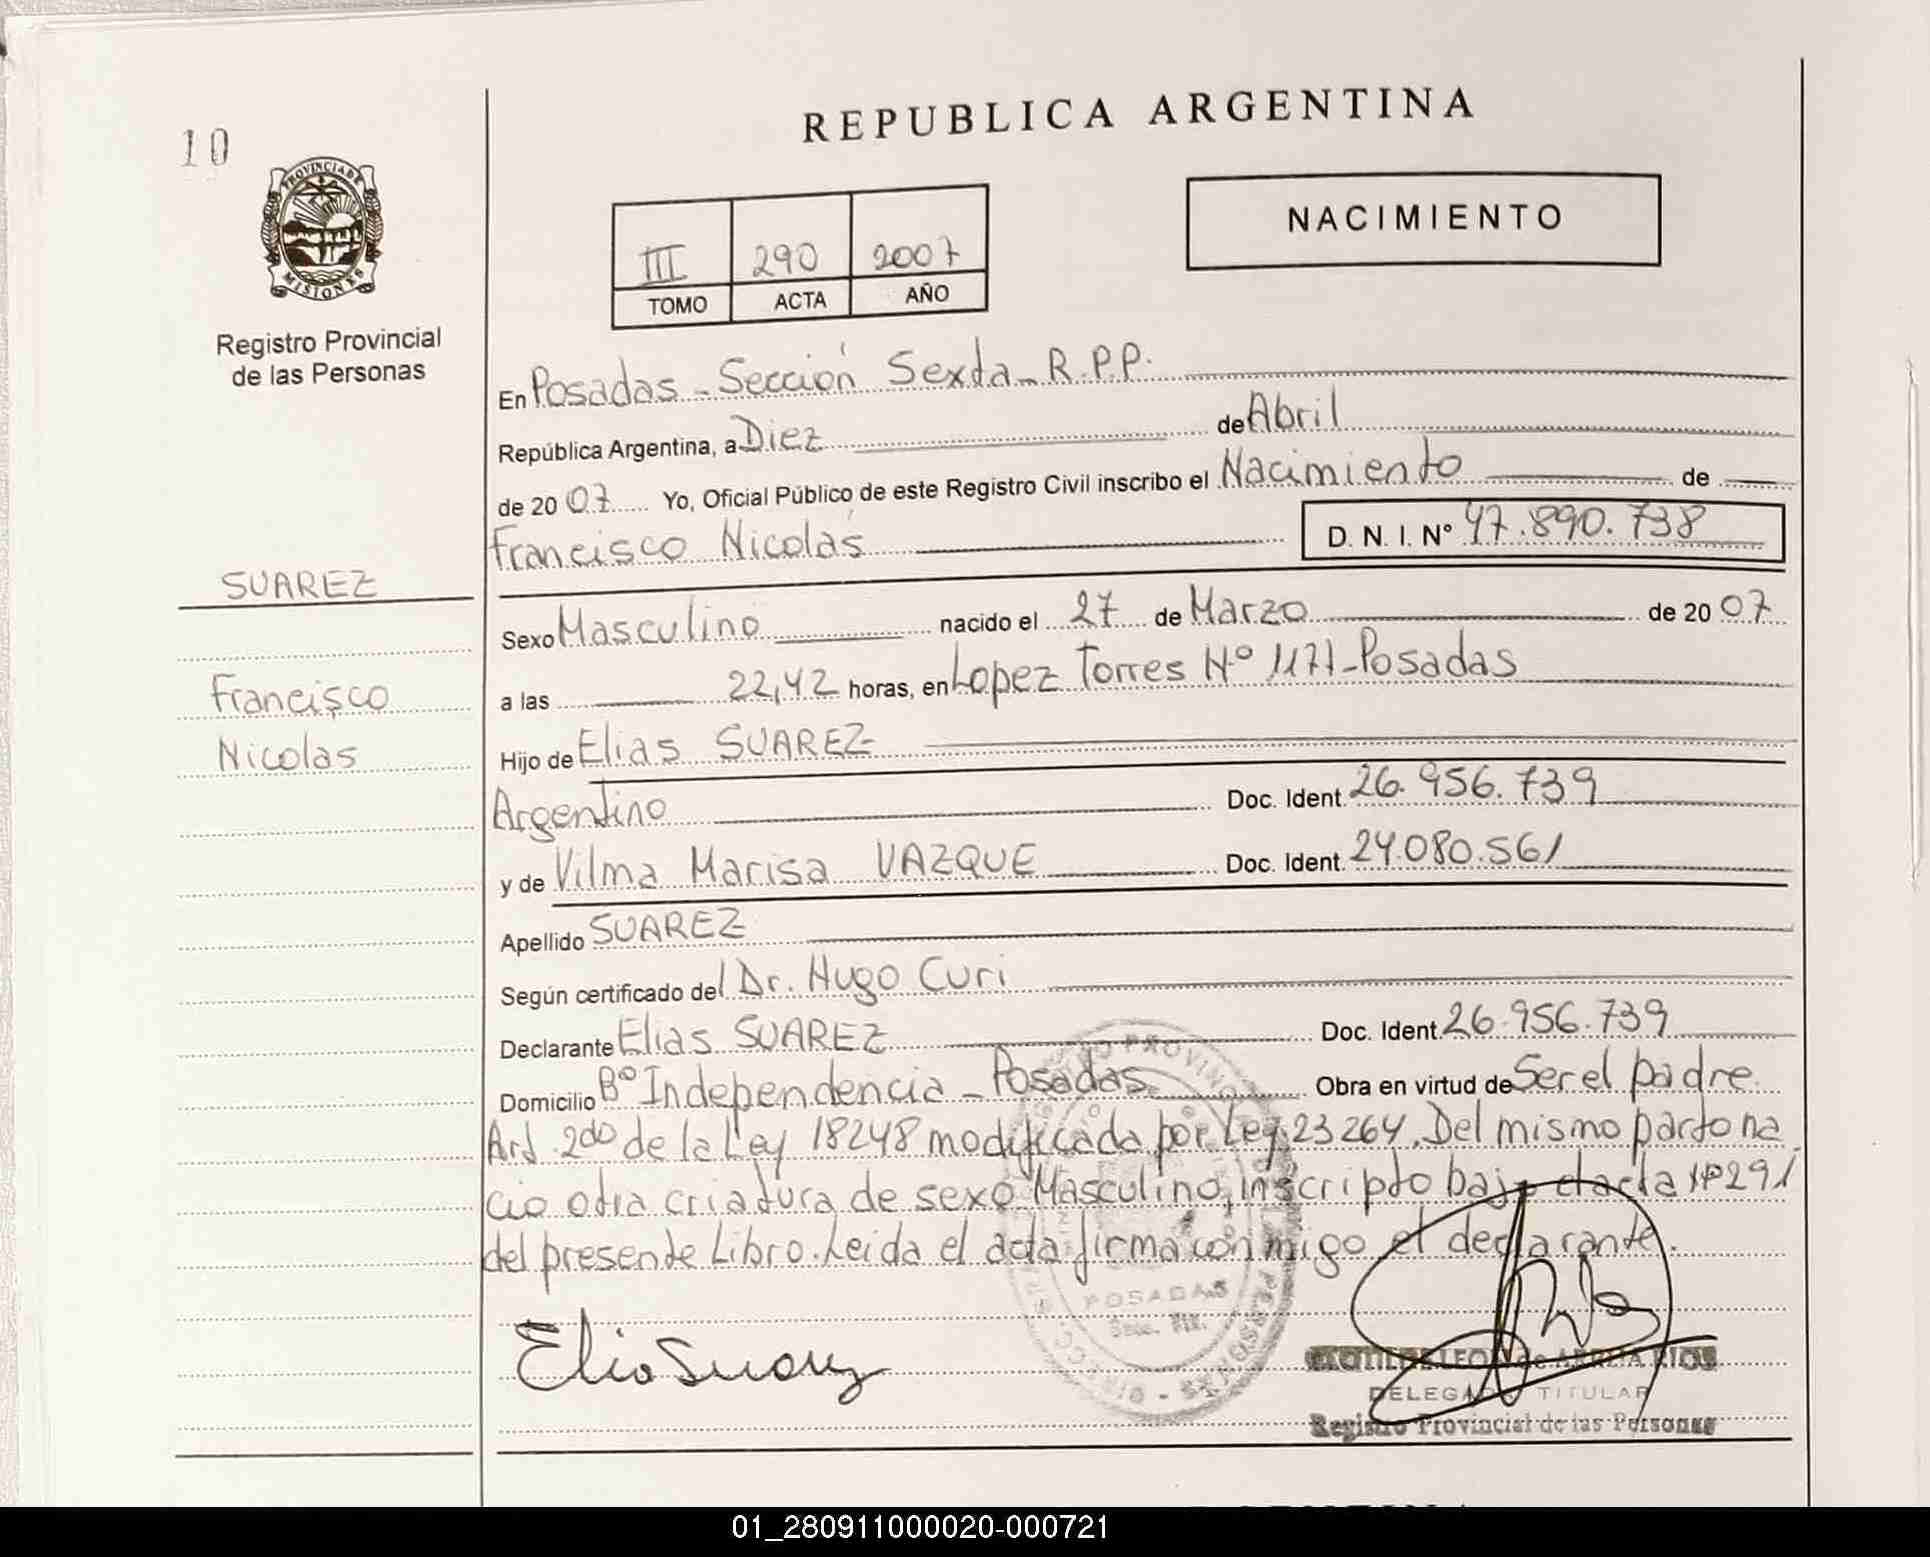 REPUBLICA ARGENTINA
10
PROVINCIA DE
MISIONES
Registro Provincial
de las Personas
III 290 2007
TOMO ACTA AÑO
NACIMIENTO
En Posadas - Sección Sexta - R.P.P.
República Argentina, a Diez de Abril
de 2007 Yo, Oficial Público de este Registro Civil inscribo el Nacimiento de
Francisco Nicolás D. N. I. Nº 47.890.738
SUAREZ
Francisco
Nicolas
Sexo Masculino nacido el 27 de Marzo de 2007
a las 22,42 horas, en Lopez Torres Nº 1177 - Posadas
Hijo de Elias SUAREZ
Argentino Doc. Ident. 26.956.739
y de Vilma Marisa VAZQUE Doc. Ident. 24.080.561
Apellido SUAREZ
Según certificado del Dr. Hugo Curi
Declarante Elias SUAREZ Doc. Ident. 26.956.739
Domicilio Bº Independencia - Posadas Obra en virtud de Ser el padre
Art. 2do de la Ley 18248 modificada por Ley 23264. Del mismo parto na
cio otra criatura de sexo Masculino, inscripto bajo el acta Nº 291
del presente Libro. Leida el acta firma con migo el declarante.
POSADAS
Elio Suarez
DELEGADO TITULAR
Registro Provincial de las Personas
01_280911000020-000721